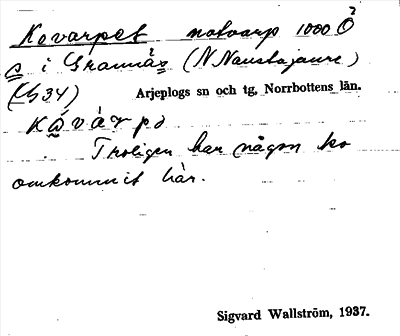 Kovarpet notvarp 1000 Ö
S i Grannäs (N Naustajaure)
(Lb 34) Arjeplogs sn och tg, Norrbottens län.
kåvarpə
Troligen har någon ko
omkommit här.
Sigvard Wallström, 1937.